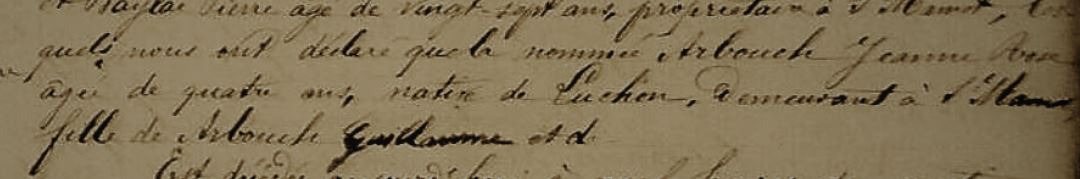 et Baylac Pierre age de vingt-sept ans, propriétaire à St Mamet, les
quels nous ont déclaré que la nommée Arbouch Jeanne Rose
âgée de quatre ans, native de Luchon, Demeurant à St Mamet,
fille de Arbouch Guillaume et d
Est décédée aujourd'hui à